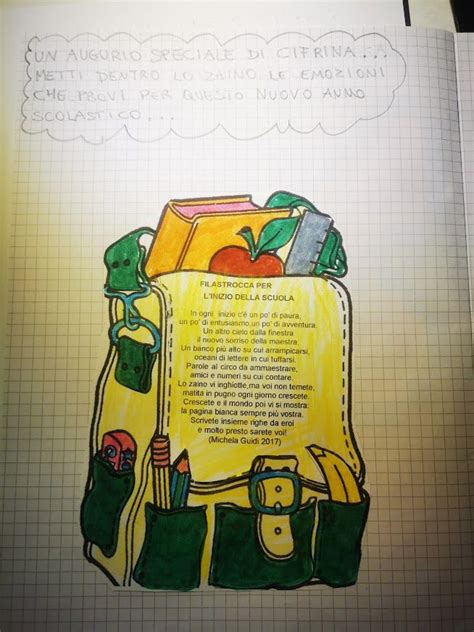 UN AUGURIO SPECIALE DI CIFRINA... 
METTI DENTRO LO ZAINO LE EMOZIONI
CHE PROVI PER QUESTO NUOVO ANNO
SCOLASTICO...
FILASTROCCA PER
L'INIZIO DELLA SCUOLA
In ogni inizio c'è un po' di paura,
un po' di entusiasmo,un po' di avventura.
Un altro cielo dalla finestra
il nuovo sorriso della maestra
Un banco più alto su cui arrampicarsi,
oceani di lettere in cui tuffarsi.
Parole al circo da ammaestrare,
amici e numeri su cui contare.
Lo zaino vi inghiotte,ma voi non temete,
matita in pugno ogni giorno crescete.
Crescete e il mondo poi vi si mostra:
la pagina bianca sempre più vostra.
Scrivete insieme righe da eroi
e molto presto sarete voi!
(Michela Guidi 2017)